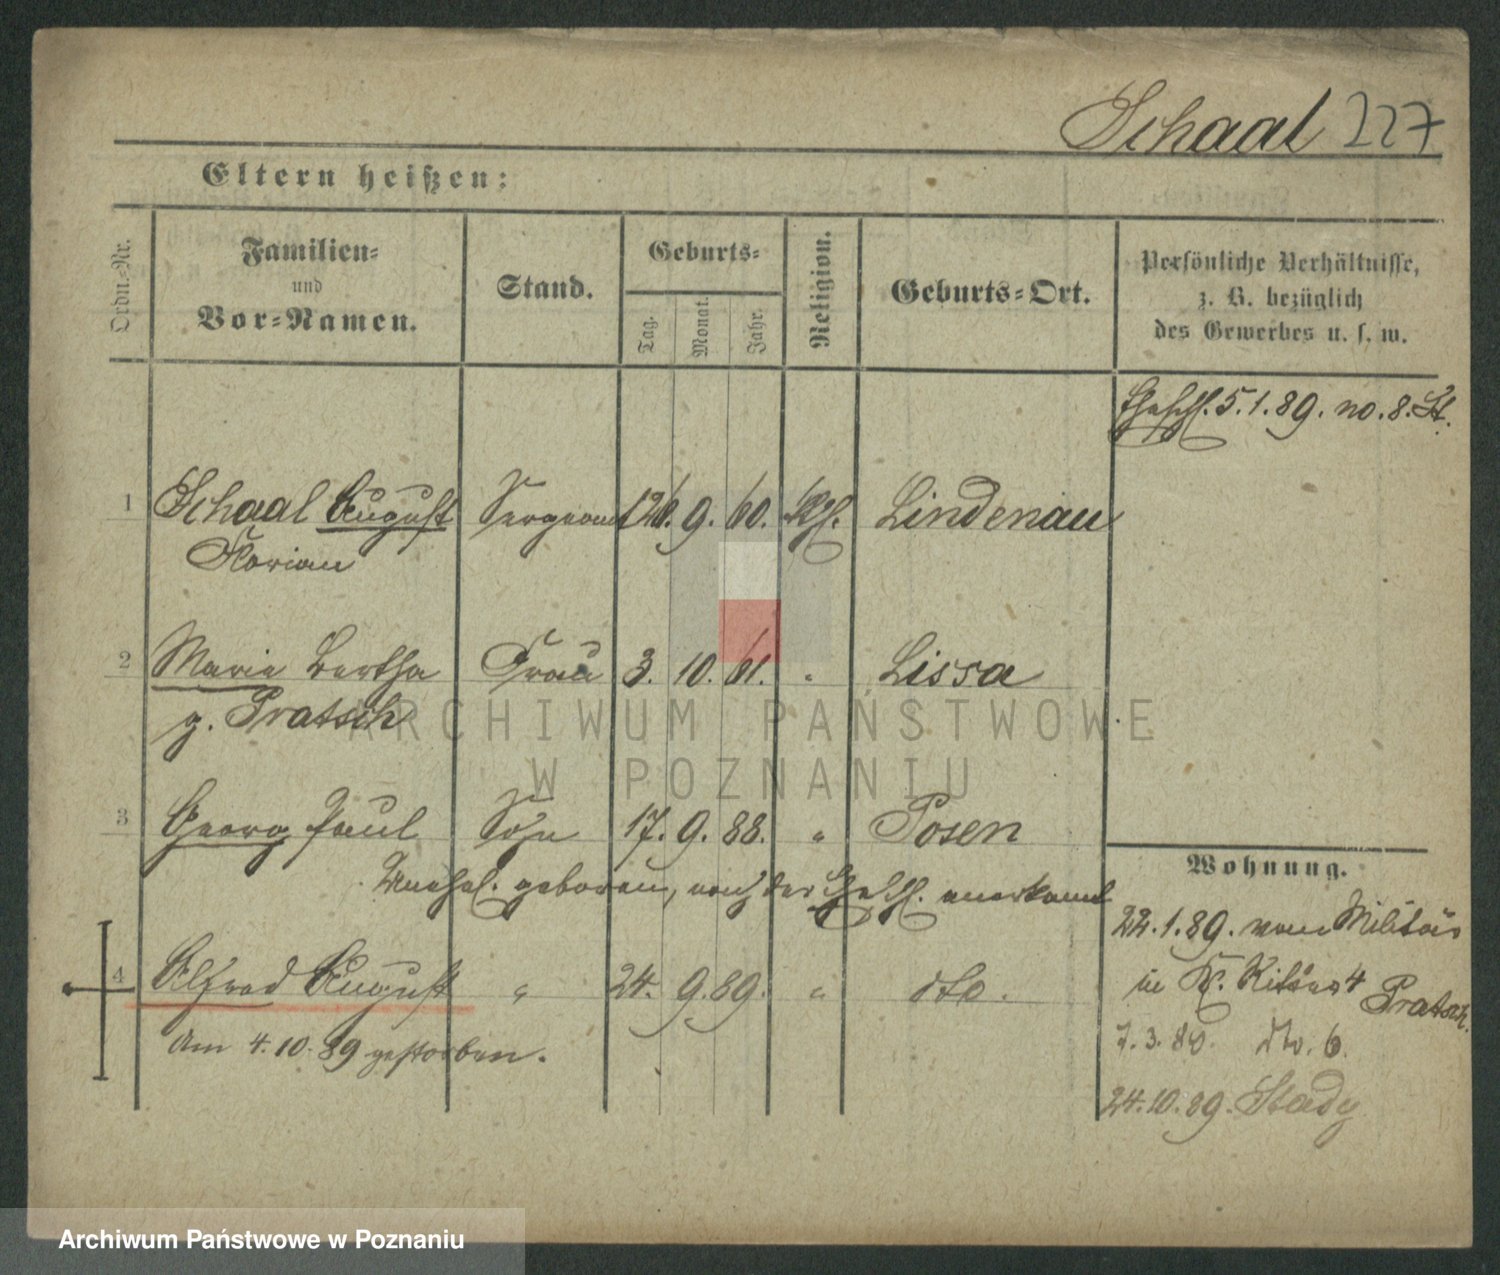 Schaal 227
Eltern heißen:
Ordn.-Nr.
Familien-
und
Vor-Namen.
Stand.
Geburts-
Tag.
Monat.
Jahr.
Religion.
Geburts-Ort.
Persönliche Verhältnisse,
z. B. bezüglich
des Gewerbes u. s. w.
Eheschl. 5.1.89. no. 8. St.
1 Schaal August Sergeant 9. 60. Kth. Lindenau
Florian
2 Marie Bertha Frau 3. 10. 61. " Lissa
g. Pratsch
3 Georg Paul Sohn 17. 9. 88. " Posen
Unehel. geboren, nach der Eheschl. anerkannt
4 Alfred August " 24. 9. 89. " dto.
Am 4.10.89 gestorben.
Wohnung.
22.1.89. vom Militär
in Kl. Ritter 4 Pratsch.
7.3.89. dto. 6.
24.10.89.
ARCHIWUM PAŃSTWOWE
W POZNANIU
Archiwum Państwowe w Poznaniu